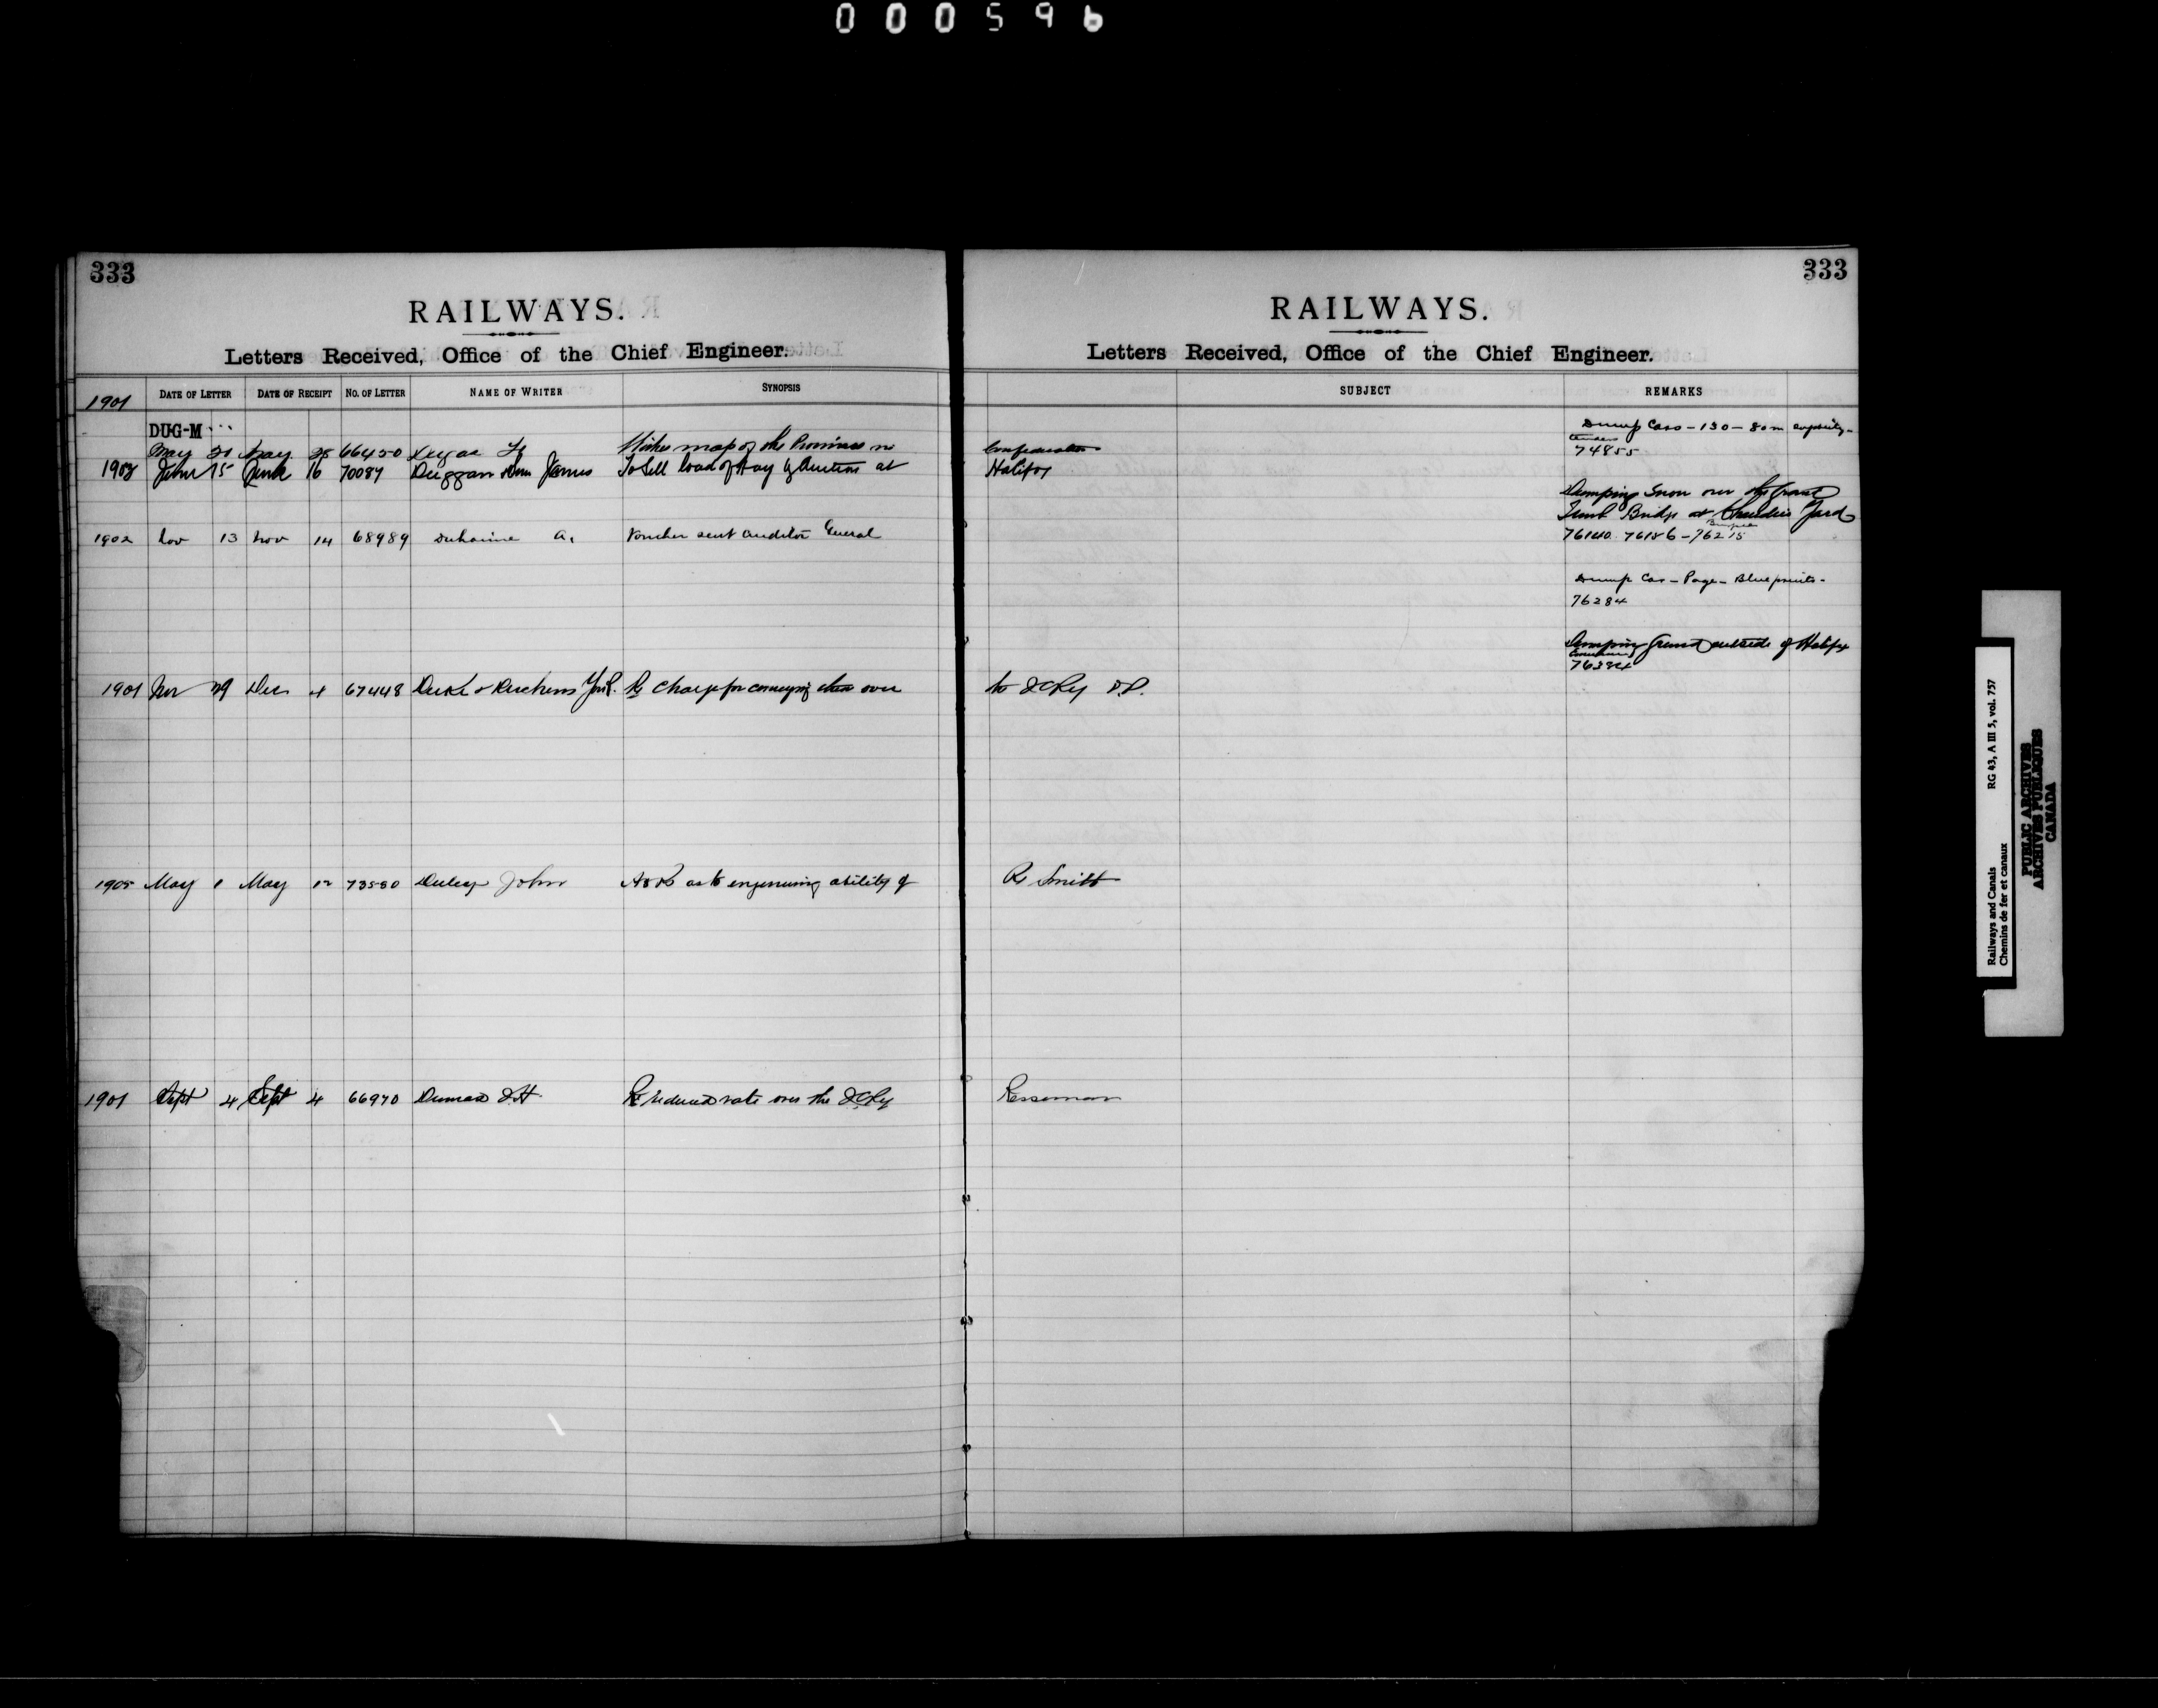 000596
333
RAILWAYS.
Letters Received, Office of the Chief Engineer.
1901 DATE OF LETTER DATE OF RECEIPT NO. OF LETTER NAME OF WRITER SYNOPSIS
DUG-M
May 20 May 28 66450 Wishes map of the Provinces in
1903 June 15 June 16 70087 Duggan James To Sell load of Hay by Auction at
1902 Nov 13 Nov 14 68989 Duhaime A. Voucher sent Auditor General
1901 Nov 29 Dec 4 67448 Duke & Re Charge for conveying over
1905 May May 12 73550 Duley John Ask as to engineering ability of
1901 Sept 4 Sept 4 66970 Dumas Re reduced rate over the ICRy
333
RAILWAYS.
Letters Received, Office of the Chief Engineer.
SUBJECT REMARKS
Confederation
Halifax
to ICRy
R Smith
Dump Cars - 130 - 80 m capacity -
Tenders
74855
Dumping Snow over
Bridge at Chaudiere Yard
76140 76156 - 76215
Dump Car - Page - Blueprints -
76284
Dumping Ground outside of Halifax
76384
Railways and Canals RG 43, A III 5, vol. 757
Chemins de fer et canaux
PUBLIC ARCHIVES
ARCHIVES PUBLIQUES
CANADA